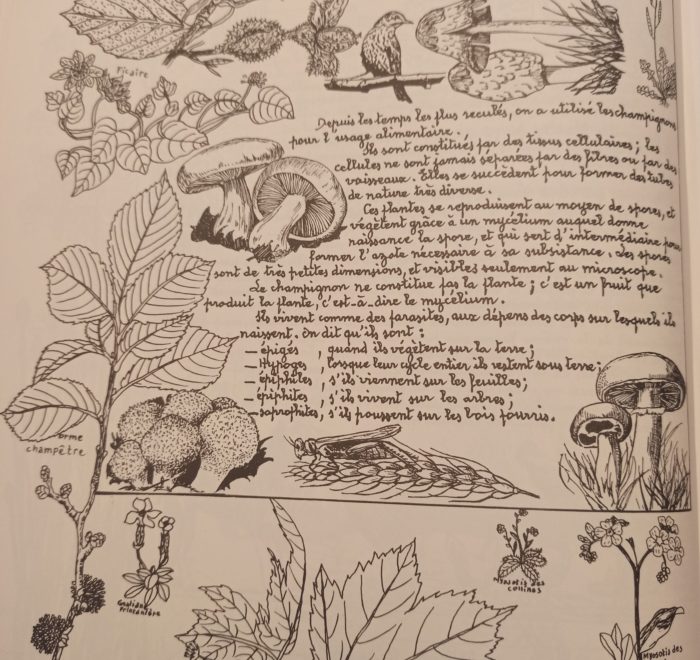 Ficaire
Depuis les temps les plus reculés, on a utilisé les champignons
pour l'usage alimentaire.
Ils sont constitués par des tissus cellulaires ; les
cellules ne sont jamais séparées par des fibres ou par des
vaisseaux. Elles se succèdent pour former des tubes
de nature très diverse.
Ces plantes se reproduisent au moyen de spores, et
végètent grâce à un mycélium auquel donne
naissance la spore, et qui sert d'intermédiaire pour
former l'azote nécessaire à sa subsistance. Les spores
sont de très petites dimensions, et visibles seulement au microscope.
Le champignon ne constitue pas la plante ; c'est un fruit que
produit la plante, c'est-à-dire le mycélium.
Ils vivent comme des parasites, aux dépens des corps sur lesquels ils
naissent. On dit qu'ils sont :
_ épigés , quand ils végètent sur la terre ;
_ Hypogés , lorsque leur cycle entier ils restent sous terre ;
_ épiphites , s'ils viennent sur les feuilles ;
_ épiphites , s'ils vivent sur les arbres ;
_ saprophites, s'ils poussent sur les bois pourris.
orme
champêtre
Myosotis des
collines
Myosotis des